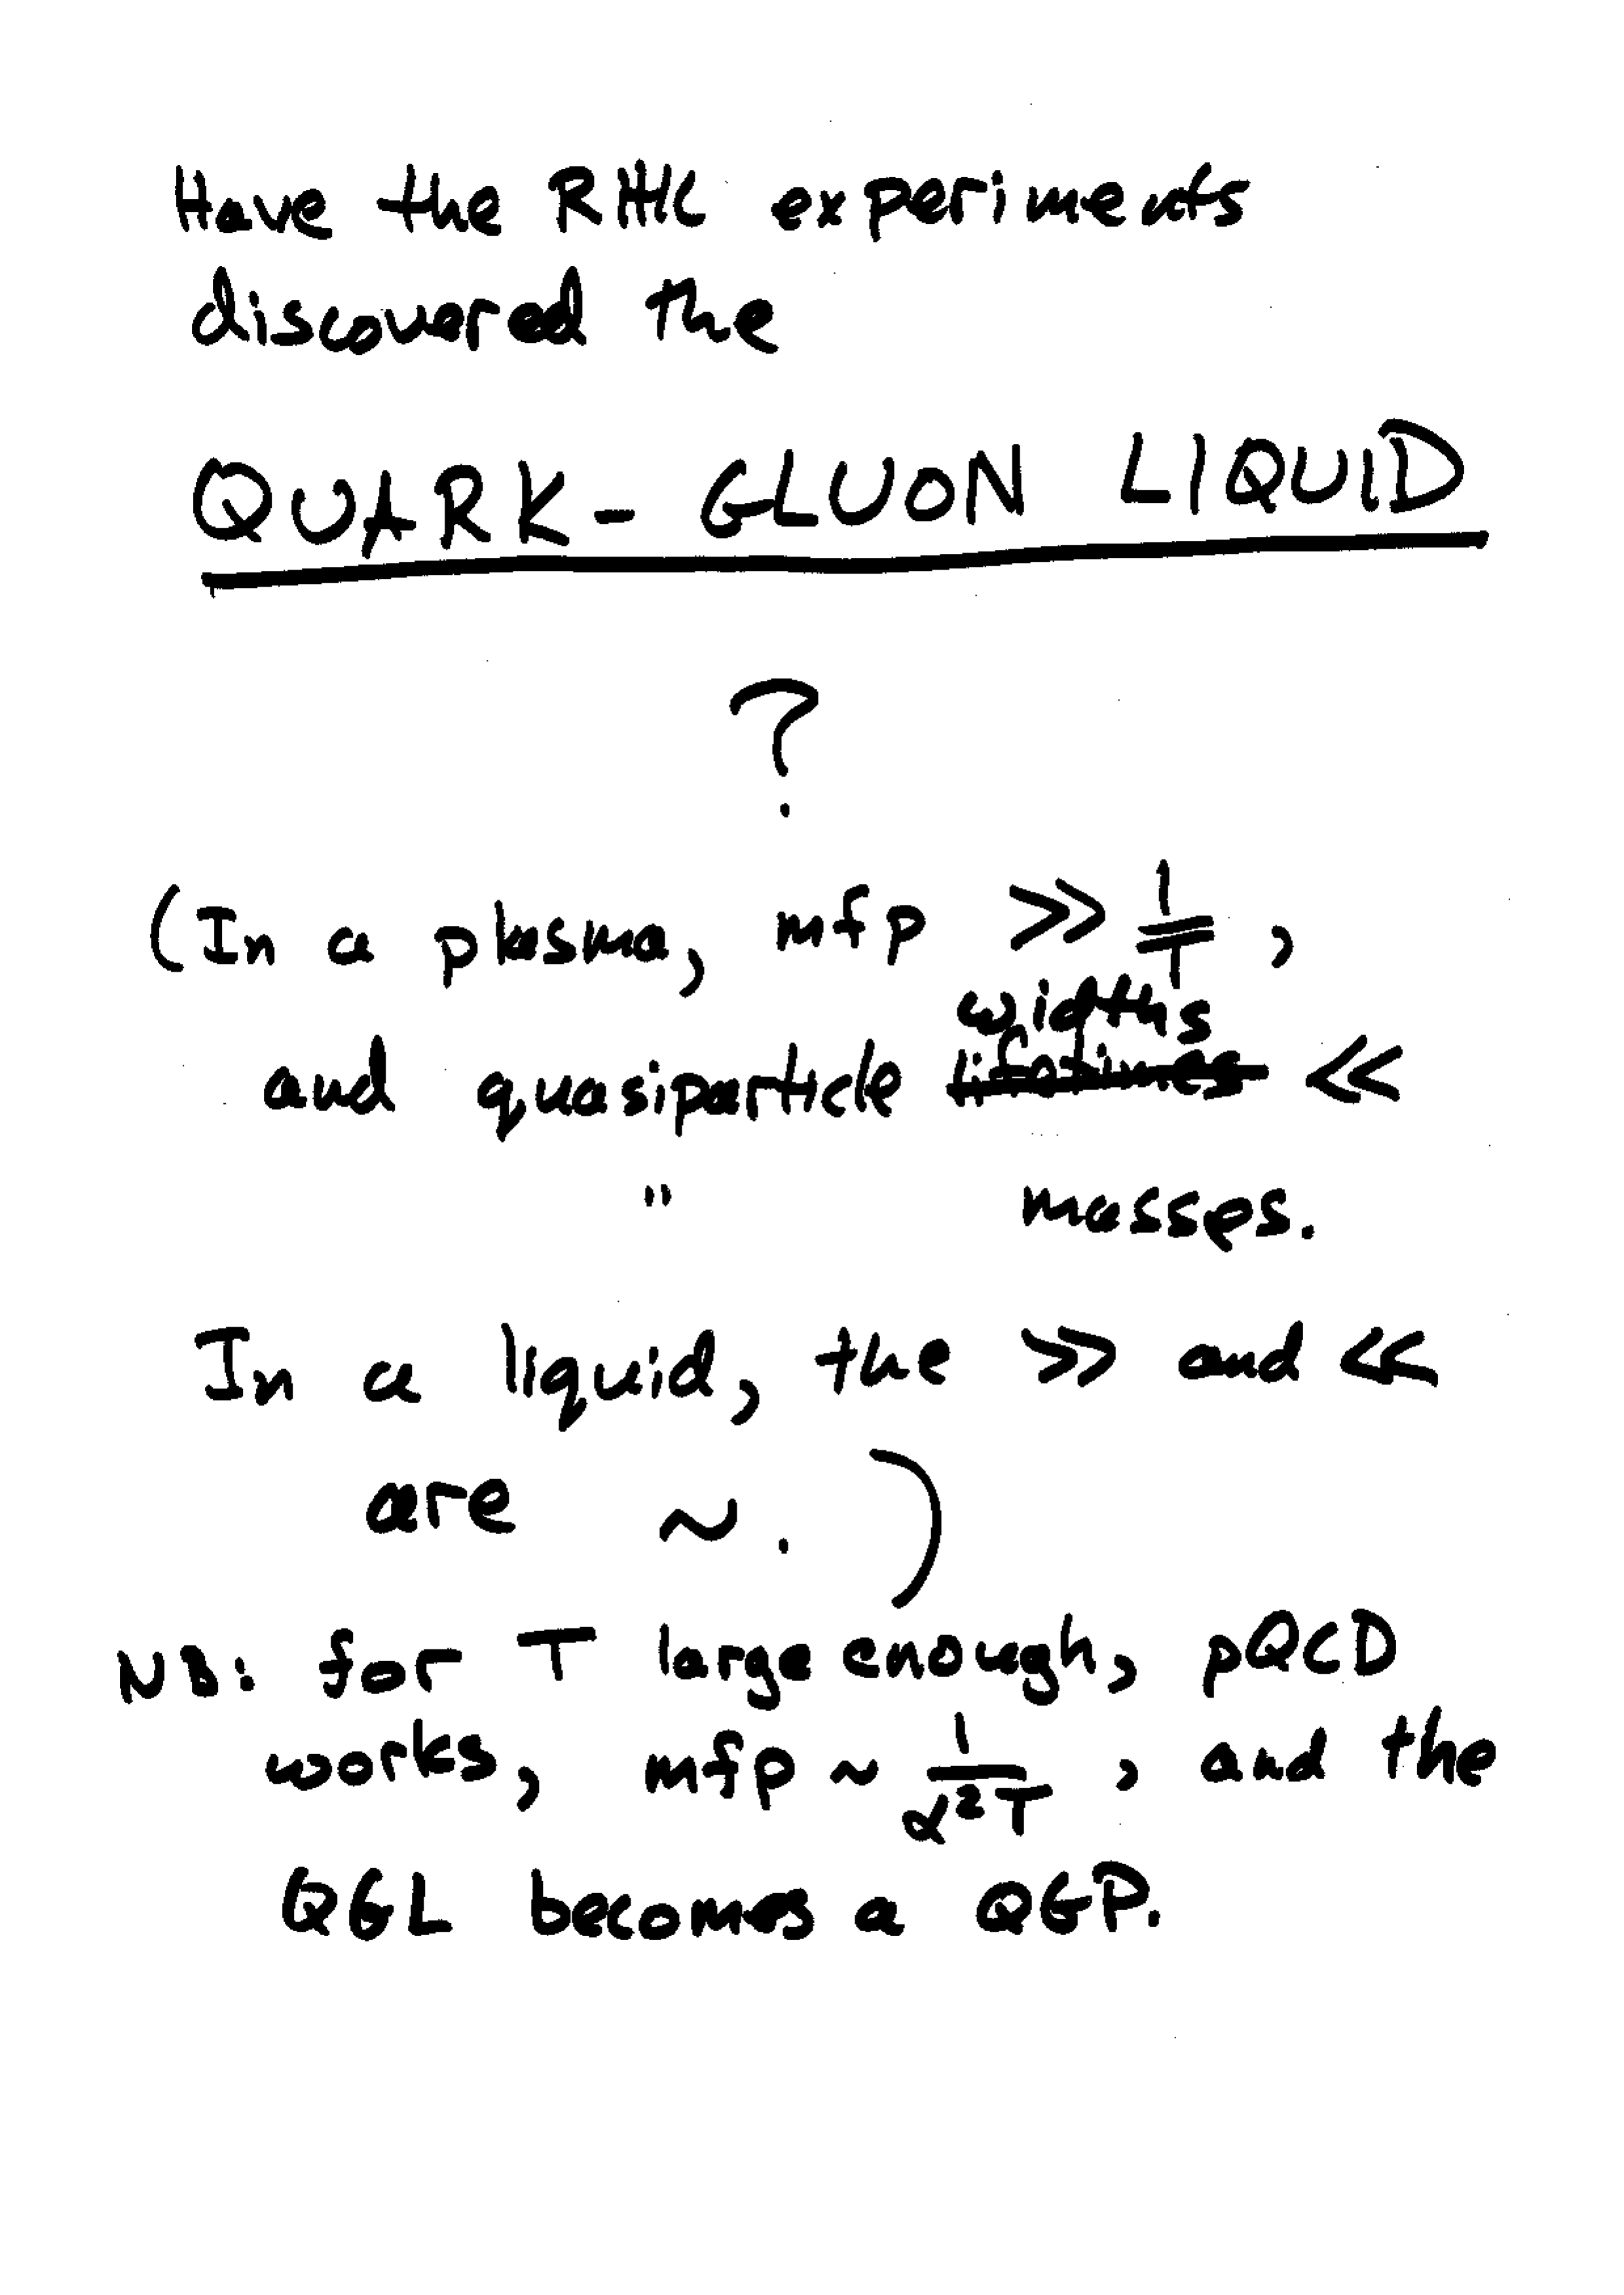 Have the RHIC experiments
discovered the
QUARK-GLUON LIQUID
?
(In a plasma, mfp >> 1/T ,
widths
and quasiparticle lifetimes <<
" masses.
In a liquid, the >> and <<
are ~ . )
NB: for T large enough, pQCD
works, mfp ~ 1/α²T , and the
QGL becomes a QGP.